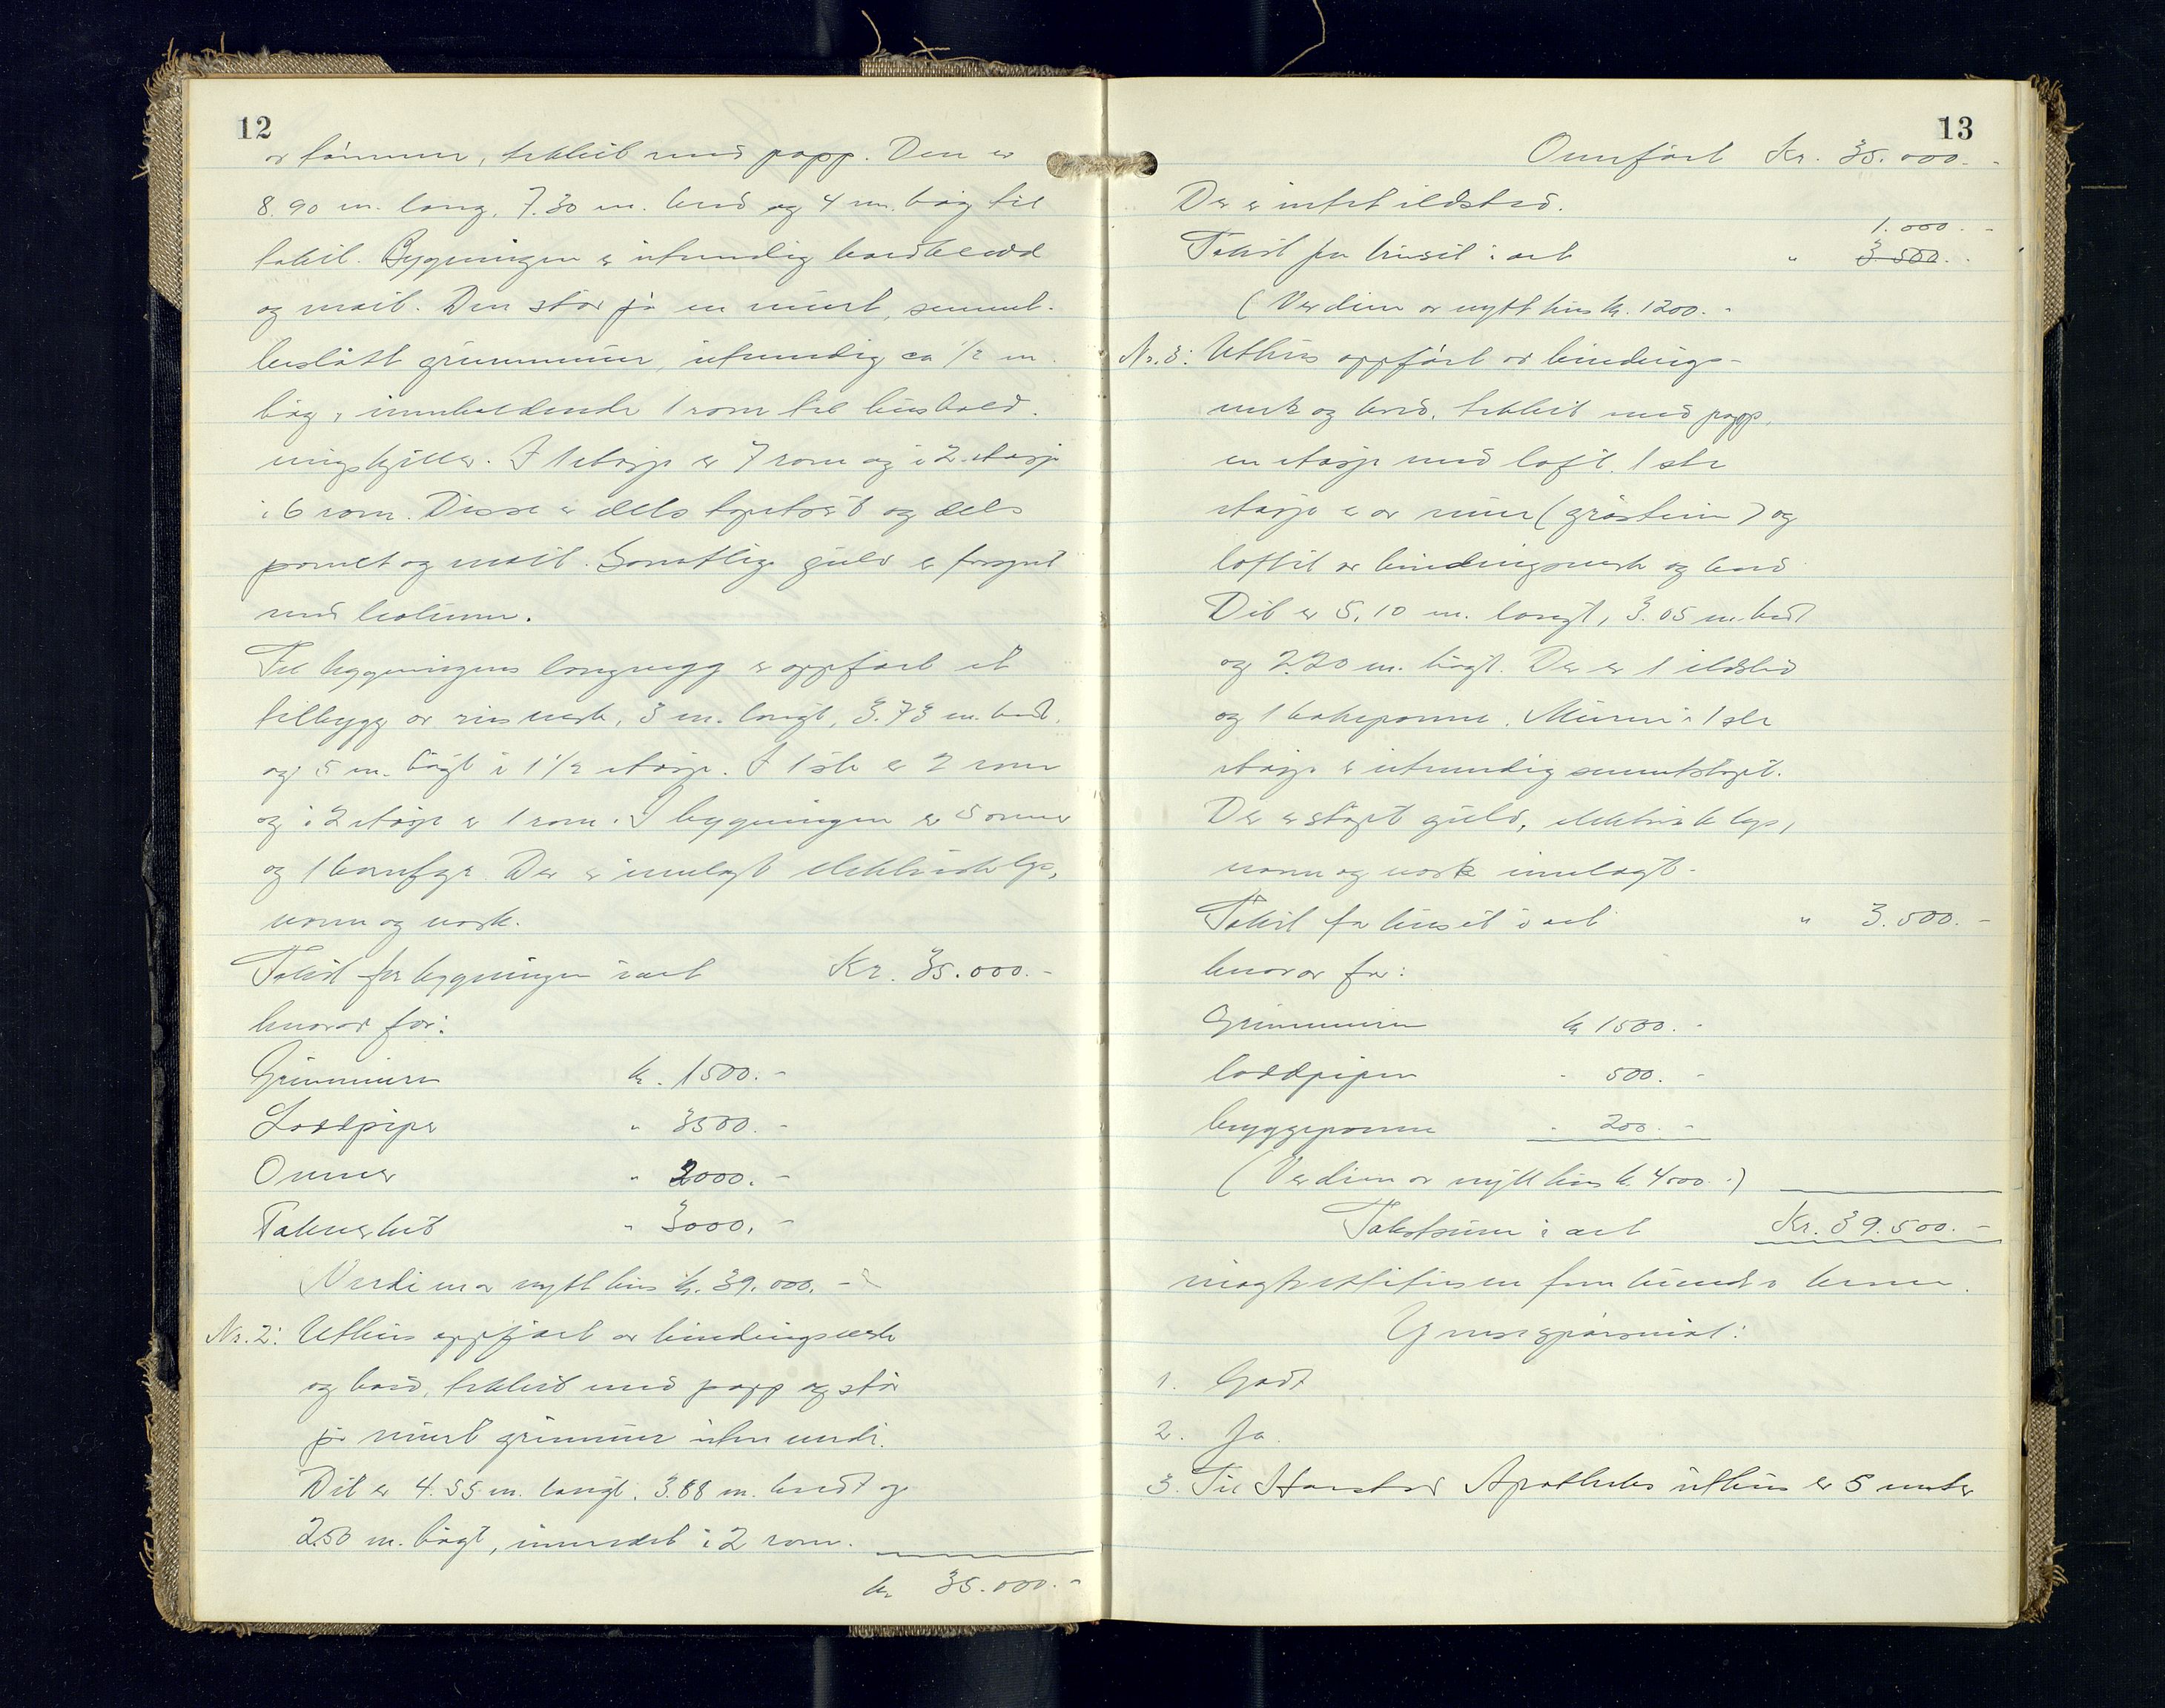 12
av tømmer, tekket med papp. Den er
8.90 m. lang, 7.30 m. bred og 4 m. høg til
taket. Bygningen er utvendig bordkledd
og malt. Den står på en muret, sement-
beslått grunnmur, utvendig ca 1/2 m.
høg, innholdende 1 rom til hushold-
ningskjeller. I 1 etasje er 7 rom og i 2. etasje
i 6 rom. Disse er dels tapetsert og dels
panelt og malt. Samtlige gulv er forsynt
med
Til bygningens langvegg er oppført et
tilbygg av reisverk, 3 m. langt, 3.73 m. bredt,
og 5 m. høgt i 1 1/2 etasje. I 1ste er 2 rom
og i 2 etasje er 1 rom. I bygningen er 5 ovner
og 1 komfyr. Der er innlagt elektrisk lys,
vann og vask.
Takst for bygningen i alt Kr. 35.000.-
hvorav for:
Grunnmuren kr. 1500.-
Loddpiper " 3500.-
Ovner " 2000.-
Takverket " 3000.-
Verdien av nytt hus kr. 39.000.-
Nr. 2: Uthus oppført av bindingsverk
og bord, tekket med papp og står
på muret grunnmur uten verdi.
Det er 4.55 m. langt, 3.88 m. bredt og
2.50 m. høgt, innredet i 2 rom.
kr 35.000.-
13
Overført Kr. 35.000.-
Der er intet ildsted.
1.000.-
Takst for huset i alt " 3.500.-
(Verdien av nytt hus kr. 1200.-
Nr. 3: Uthus oppført av bindings-
verk og bord, tekket med papp,
en etasje med loft. 1ste
etasje er av mur (gråstein) og
loftet av bindingsverk og bord
Det er 5.10 m. langt, 3.05 m. bredt
og 2.20 m. høgt. Der er 1 ildsted
og 1 bakepanne. Muren i 1ste
etasje er utvendig sementstøpt.
Der er støpt gulv, elektrisk lys,
vann og vask innlagt.
Takst for huset i alt " 3.500.-
hvorav for:
Grunnmuren kr 1500.-
loddpipen - 500.-
bryggepanne - 200.-
(Verdien av nytt hus kr. 4000.-)
Takstsum i alt Kr. 39.500.-
niogtrettitusen fem hundre kroner.
Granspørsmål:
1. Godt
2. Ja.
3. Til Harstad Apotheks uthus er 5 meter